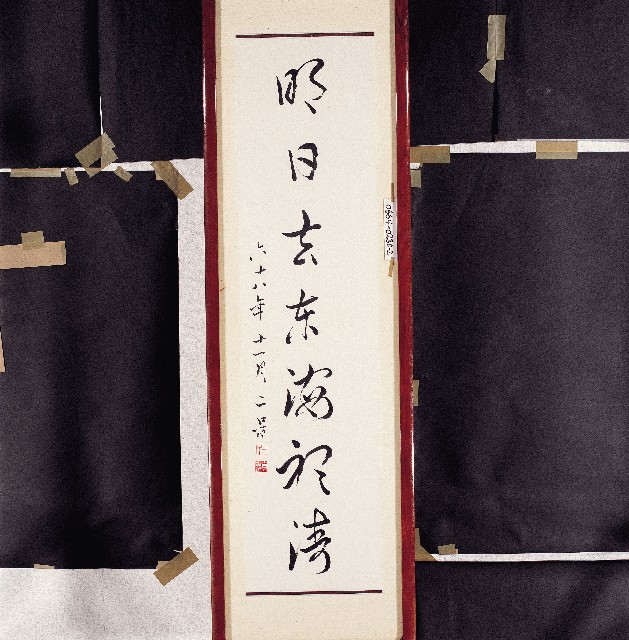 明日去东海涛
六十八年十一月二呆